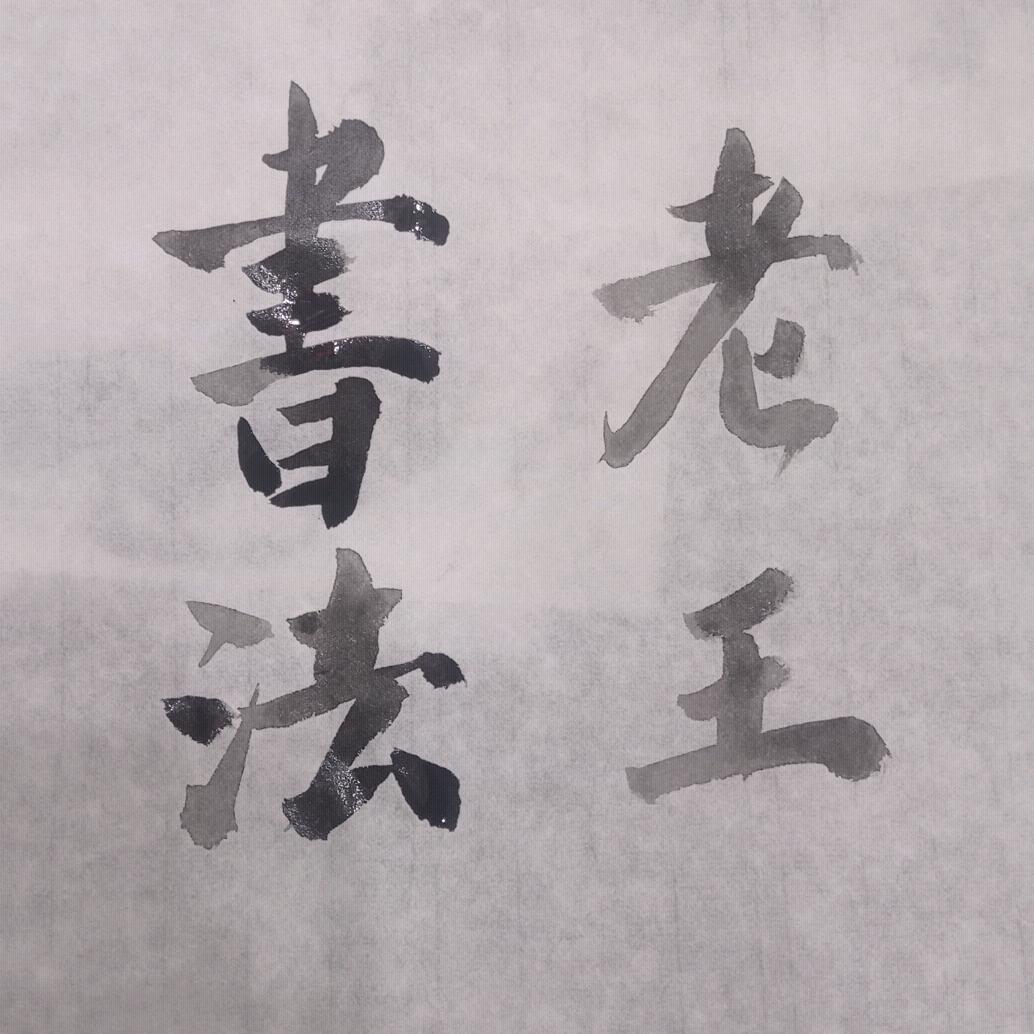 老王
書法